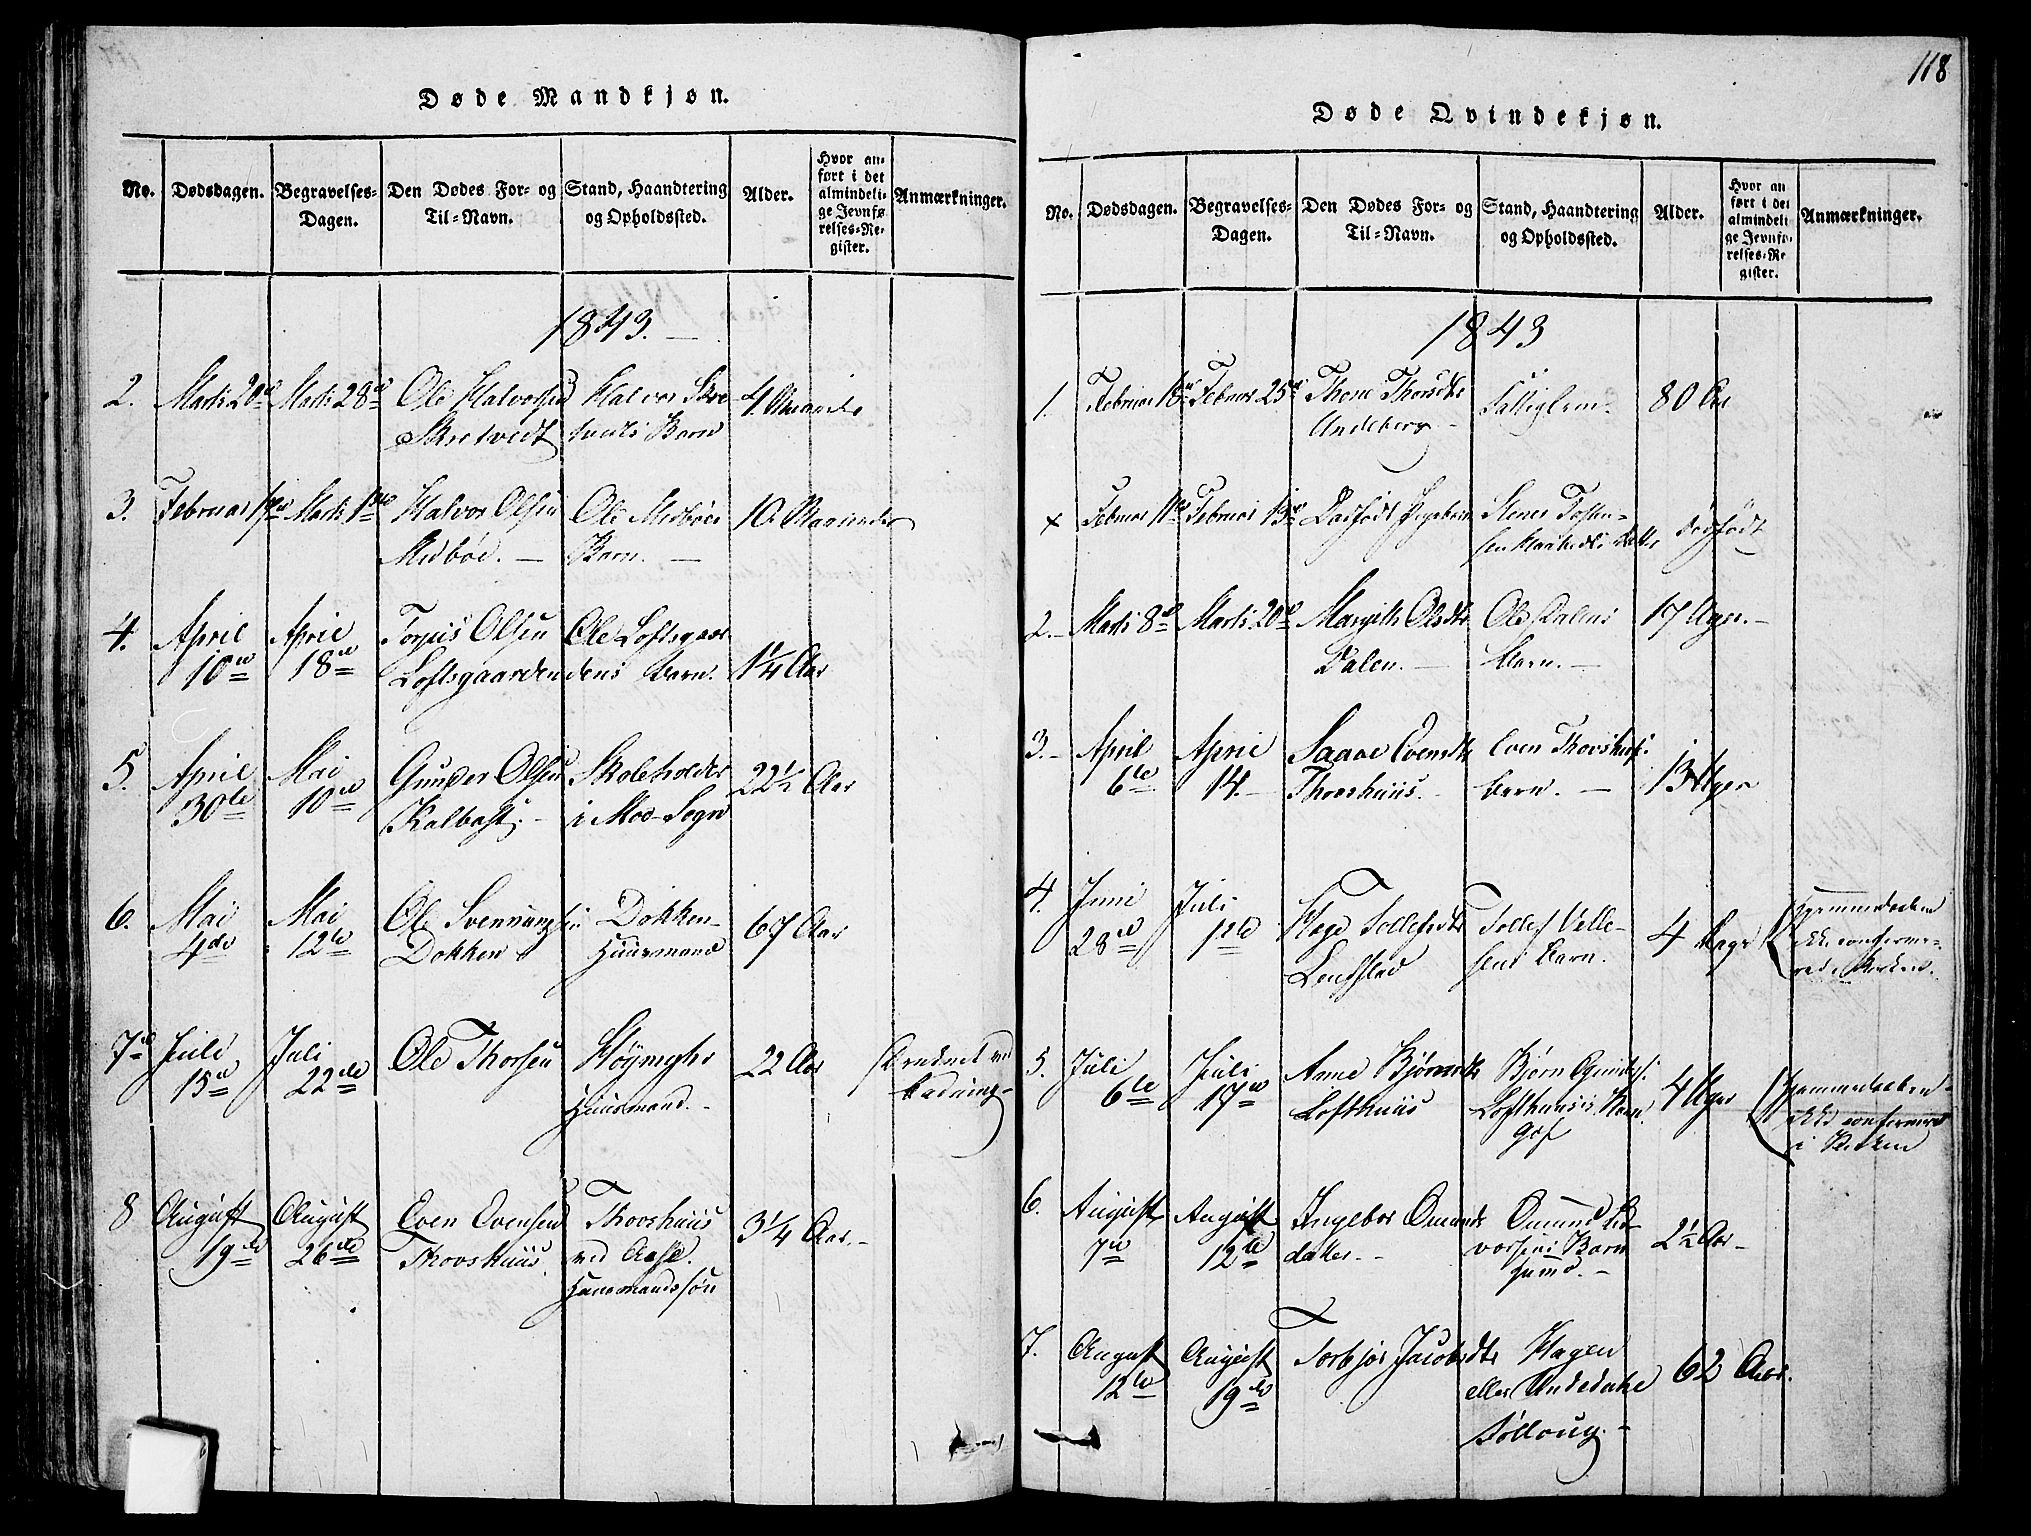 118
Døde Mandkjøn.
No. Dødsdagen. Begravelses-Dagen. Den Dødes For- og Til-Navn. Stand, Haandtering og Opholdssted. Alder. Hvor anført i det almindelige Jevnførelses-Register. Anmærkninger.
1843.
2. Marts 20de Marts 28de Ole Halvorsen Halvor Skre 4 Maaneder
Skretvedt tvedts Barn
3. Februar Marts 1ste Halvor Olsen Ole Midbøes 10 Maaneder
Midbøe. Barn.
4. April April Torjus Olsen Ole Loftsgaar
10de 18de Loftsgaarden dens Barn. 1 1/4 Aar
5. April Mai Gunder Olsen Skoleholder 22 1/2 Aar
30te 10de Kalbast. i Moe-Sogn
6. Mai Mai Ole Svennungsen Dokken 67 Aar
4de 12te Dokken Huusmand
7de Juli Juli Ole Thorsen Høymyhr 22 Aar Druknet ved
15de 22de Huusmand. badning
8 August August Even Evensen Thovshuus 3 1/4 Aar.
19de 26de Thovshuus ved Aase.
Huusmandssøn
Døde Qvindekjøn.
No. Dødsdagen. Begravelses-Dagen. Den Dødes For- og Til-Navn. Stand, Haandtering og Opholdssted. Alder. Hvor anført i det almindelige Jevnførelses-Register. Anmærkninger.
1843
1. Februar 18de Februar 25de Thone Thorsdtr Fattiglem. 80 Aar
Andeberg
x Februar 11te Februar 13de Dødfødt Pigebarn Stener Tosten-
sen dødfødt
2. Marts 8de Marts 20de Margith Olsdtr Ole Dalens 17 Uger.
Dalen. Barn.
3. April April Saave Evensdtr Even Thovshuus
6te 14. Thovshuus. Barn. 13 Uger
4. Juni Juli Hege Tollefsdtr Tollef Velle- 4 Dage Hjemmedøbt
28de 1ste Lendstad sens Barn. ikke confirme-
ret i Kirken.
5. Juli Juli Anne Bjørnsdtr Bjørn 4 Uger Hjemmedøbt
6te 17de Lofthuus Lofthuus's Barn ikke confirmeret
i Kirken
6. August August Ingebor Omunds Omund Hal-
7de 12te datter. vorsens Barn 2 1/2 Aar
7. August August Torbjør Jacobsdtr Hagen 62 Aar.
12te 19de eller